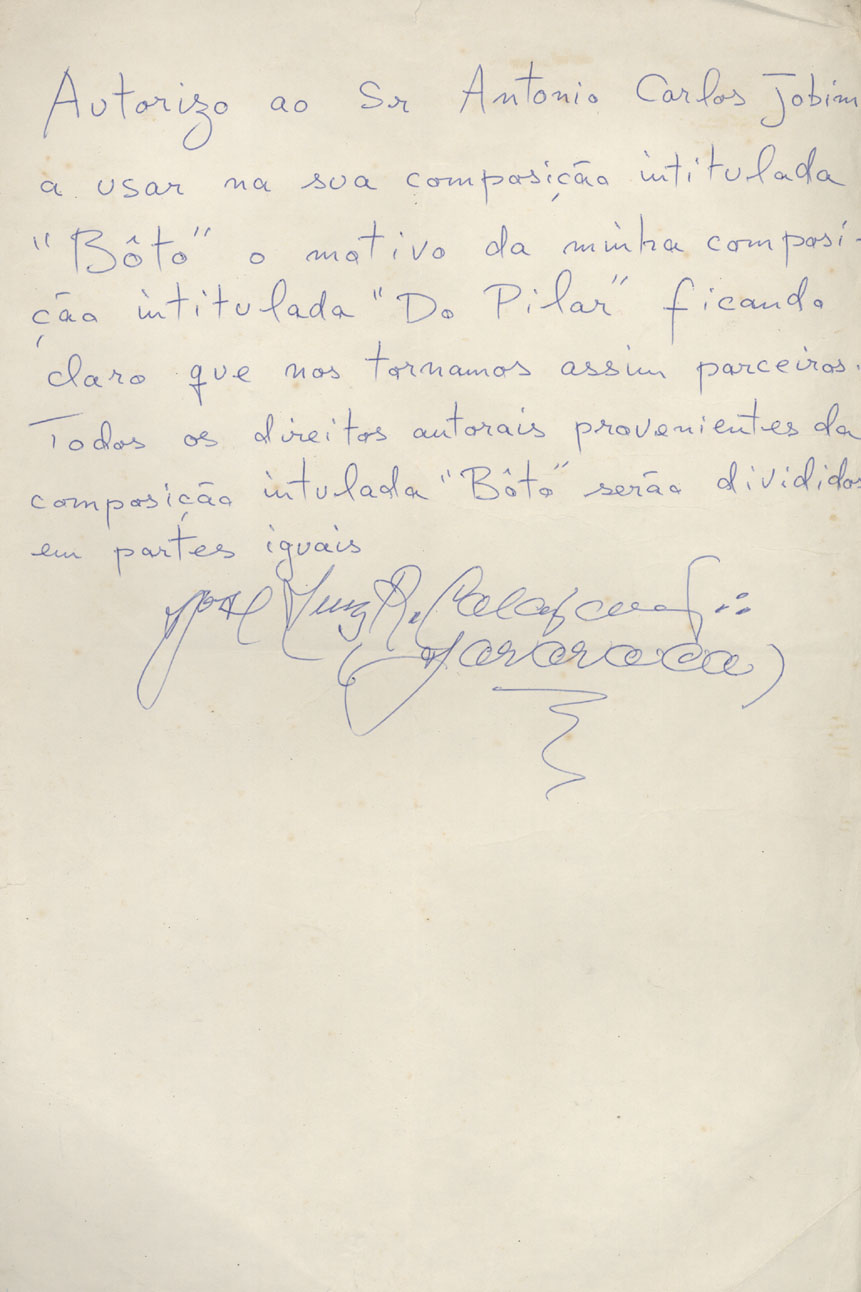 Autorizo ao Sr Antonio Carlos Jobim
a usar na sua composição intitulada
"Bôto" o motivo da minha composi-
ção intitulada "Do Pilar" ficando
claro que nos tornamos assim parceiros.
Todos os direitos autorais provenientes da
composição intulada "Bôto" serão divididos
em partes iguais
José Luiz R. Calazans
(Jararaca)